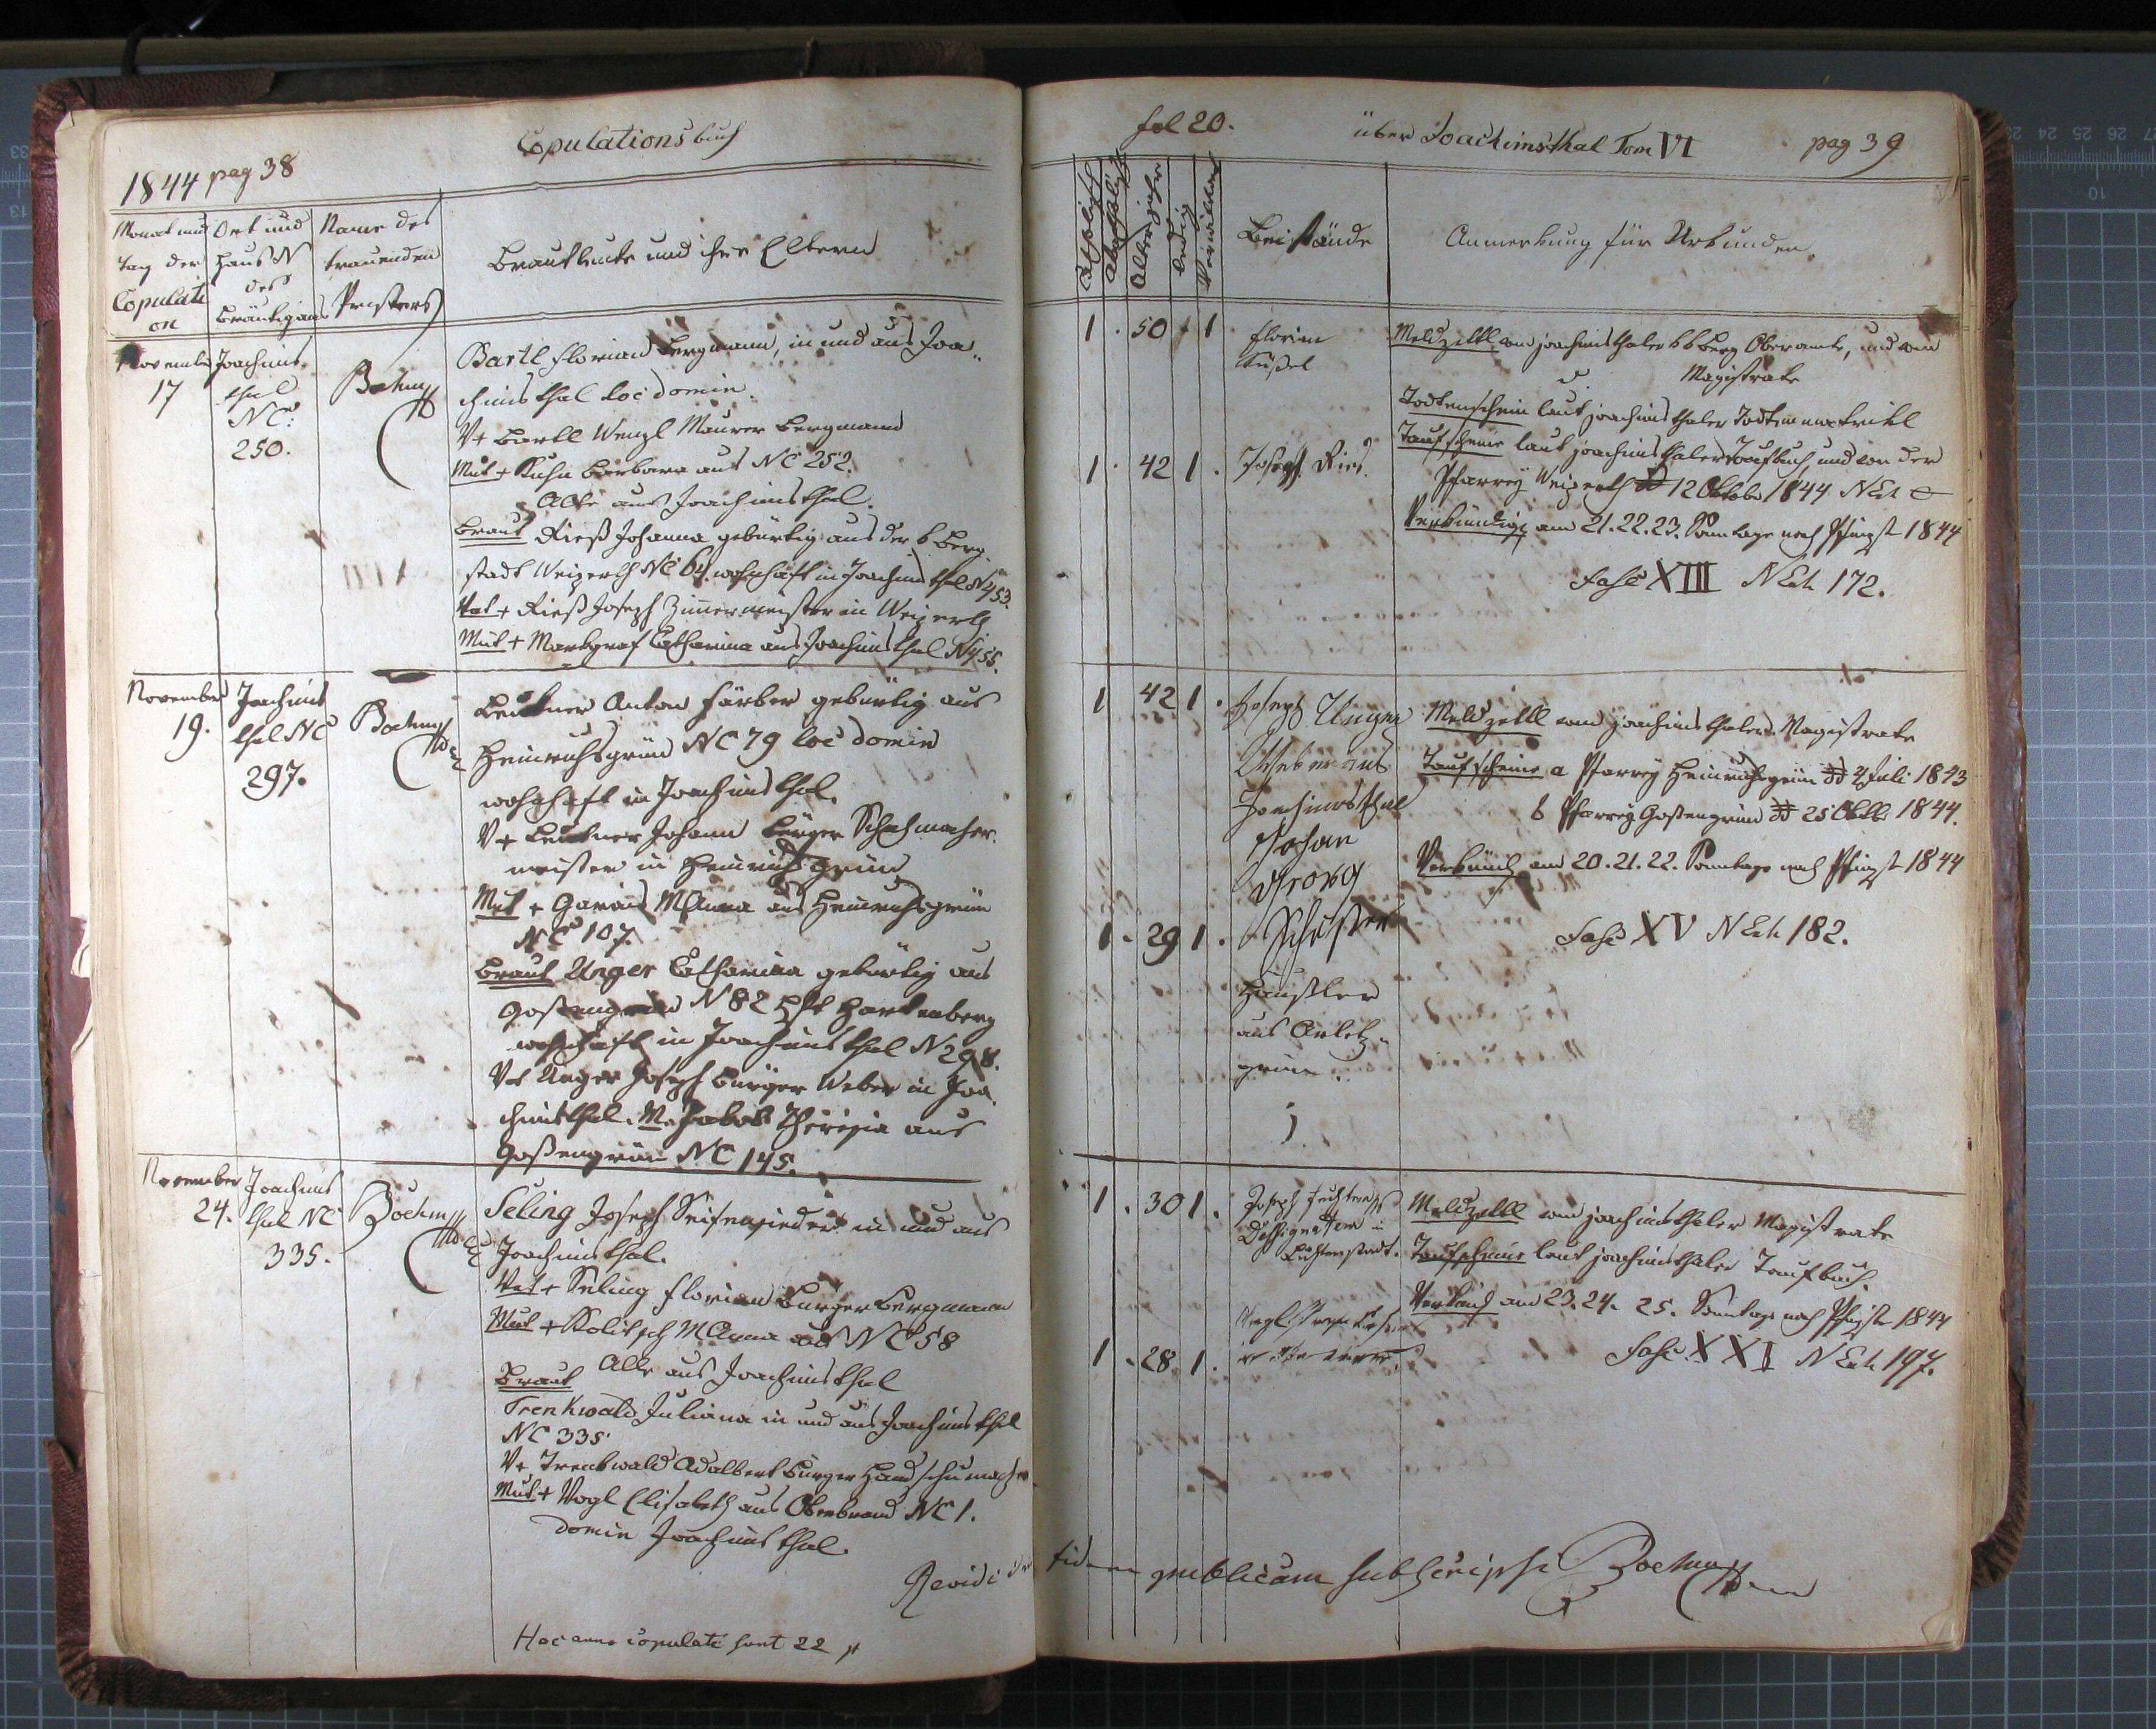 1844 pag 38
Copulationsbuch
Monat und
Tag der
Copulati
on
Ort und
Haus N
des
Bräutigams
Name des
trauenden
Priesters
Brautleute und ihre Eltern
November
17
Joachims
thal
NC:
250.
Boehm
Bartl Florian Bergmann, in und aus Joa„
chimsthal loc domin.
V+ Bartl Wenzl Maurer Bergmann
Mut + Kuhn Barbara aus NC 252.
Alle aus Joachimsthal.
Braut Rieß Johanna gebürtig aus der k Berg
stadt Weiperth NC 64. wohnhaft in Joachimsthal N 453.
Vat + Rieß Joseph Zimmermeister in Weiperth
Mut + Markgraf Catharina aus Joachimsthal N 455.
November
19.
Joachims
thal NC
297.
Boehm
Anton Färber gebürtig aus
Heinrichsgrün NC 79 loc domin
wohnhaft in Joachimsthal.
V+ Johann Bürger Schuhmacher
meister in Heinrichsgrün
Mut + M Anna aus Heinrichsgrün
NC 107.
Braut Unger Catharina gebürtig aus
Goßengrün N 82 Hft Hartenberg
wohnhaft in Joachimsthal N 298.
Vat Unger Joseph Bürger Weber in Joa
chimsthal. M. Jakob Theresia aus
Goßengrün NC 145.
November
24.
Joachims
thal NC
335.
Boehm
Seling Joseph Seifensieder in und aus
Joachimsthal.
Vat + Seling Florian Bürger Bergmann
Mut + Kolitsch M Anna aus NC 58
Alle aus Joachimsthal
Braut
Trenkwald Juliana in und aus Joachimsthal
NC 335
V+ Trenkwald Adalbert Bürger Handschumacher
Mut + Vogl Elisabeth aus Oberbrand NC 1.
domin Joachimsthal.
Revidi
Hoc anno copulati sunt 22
fol 20.
über Joachimsthal Tom VI
pag 39
Katholisch
Akatholisch
Alter Jahre
Ledig
Verwittwet
Beistände
Anmerkung für Urkunden.
1 . 50 1
Florian
Küßel
Meldzettl vom joachimsthaler kk Berg Oberamte, und vom
Magistrate
Todtenschein laut joachimsthaler Todtenmatrikl
Taufscheine laut joachimsthaler Taufbuch, und von der
Pfarrey Weiperth dd 12 Oktober 1844
Verkündigt am 21. 22. 23. Sonntage nach Pfingst 1844
Fasc XIII N Exh 172.
1 . 42 1 .
Joseph Ries.
1 42 1 .
Joseph Unger
Weber aus
Joachimsthal
Meldzettl vom joachimsthaler Magistrate
Taufscheine a Pfarrey Heinrichsgrün dd Juli 1843
b Pfarrey Goßengrün dd 25 Oktb 1844.
Verkünd am 20. 21. 22. Sonntage nach Pfingst 1844
Fasc XV N Exh 182.
1 . 29 1 .
Johan
Georg
Schuster
Häußler
aus Arletz„
grün.
1 . 30 1 .
Joseph
in
Lichtenstadt.
Meldzettl vom joachimsthaler Magistrate
Taufscheine laut joachimsthaler Taufbuch.
Verkünd am 23. 24. 25. Sonntage nach Pfingst 1844
Fasc. XXI N Exh 197.
1 . 28 1 .
fidem publicam subscripsi Boehm